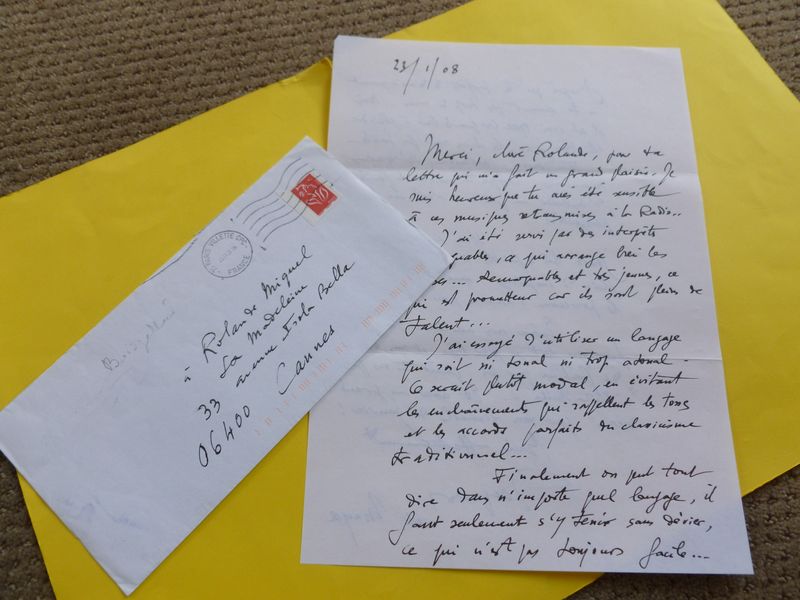 23/1/08
Merci, chère Rolande, pour ta
lettre qui m'a fait un grand plaisir. Je
suis heureux que tu aies été sensible
à ces musiques retransmises à la Radio..
J'ai été servi par des interprètes
quables, ce qui arrange bien les
es... Remarquables et très jeunes, ce
qui est prometteur car ils sont pleins de
talent...
J'ai essayé d'utiliser un langage
qui soit ni tonal ni trop atonal -
Ce serait plutôt modal, en évitant
les enchaînements qui rappellent les tons
et les accords parfaits du classicisme
traditionnel...
Finalement on peut tout
dire dans n'importe quel langage, il
faut seulement s'y tenir sans dévier,
ce qui n'est pas toujours facile...
PARIS VILLETTE CPC
FRANCE
à Rolande Miguel
La Madeleine
33 avenue Isola Bella
06400 Cannes